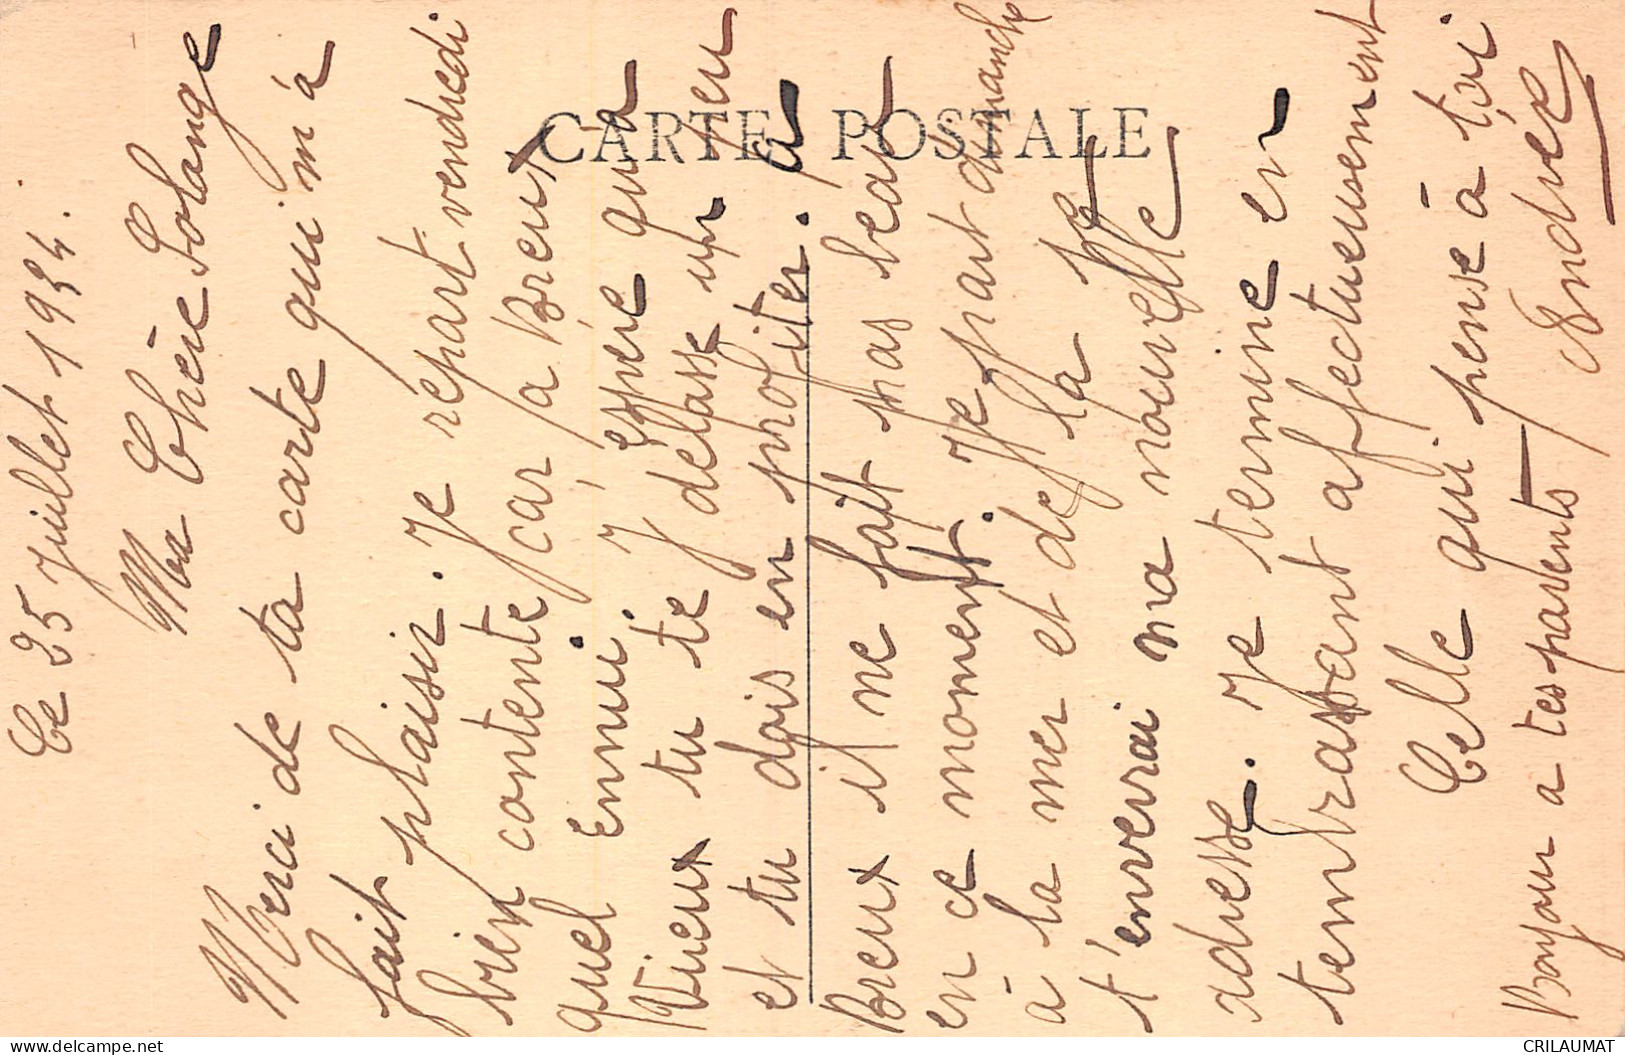 Le 25 Juillet 1934.
Ma Chère Solange
Merci de ta carte qui m'à
fait plaisir. Je répart vendredi
bien contente car, a Breux
quel Ennui. J'éspère qu'a
Vieux tu te délasse un peu
et tu dois en profiter. a
Breux il ne fait pas beau
en ce moment. Je part dimanche
à la mer et de la je
t'enverrai ma nouvelle
adresse. Je termine en
tembrassant affectueusement
Celle qui pense à toi
Andrée
Bonjour a tes parents
CARTE POSTALE
www.delcampe.net
CRILAUMAT